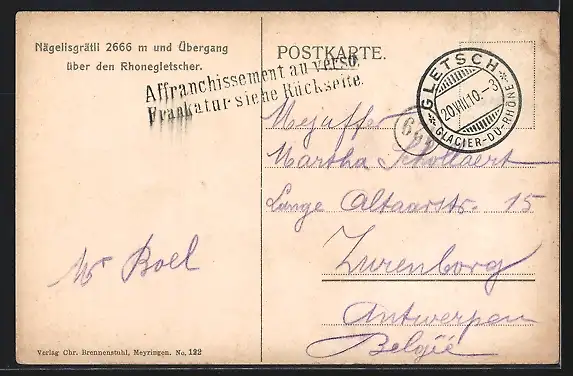 Nägelisgrätli 2666 m und Übergang
über den Rhonegletscher.
POSTKARTE.
Affranchissement au verso.
Frankatur siehe Rückseite.
GLETSCH
20.VIII.10.-3
GLACIER-DU-RHÔNE
Mejuffer
Martha Schollaert
Lange Altaarstr. 15
Zurenborg
Antwerpen
België
Mr Boel
Verlag Chr. Brennenstuhl, Meyringen. No. 122